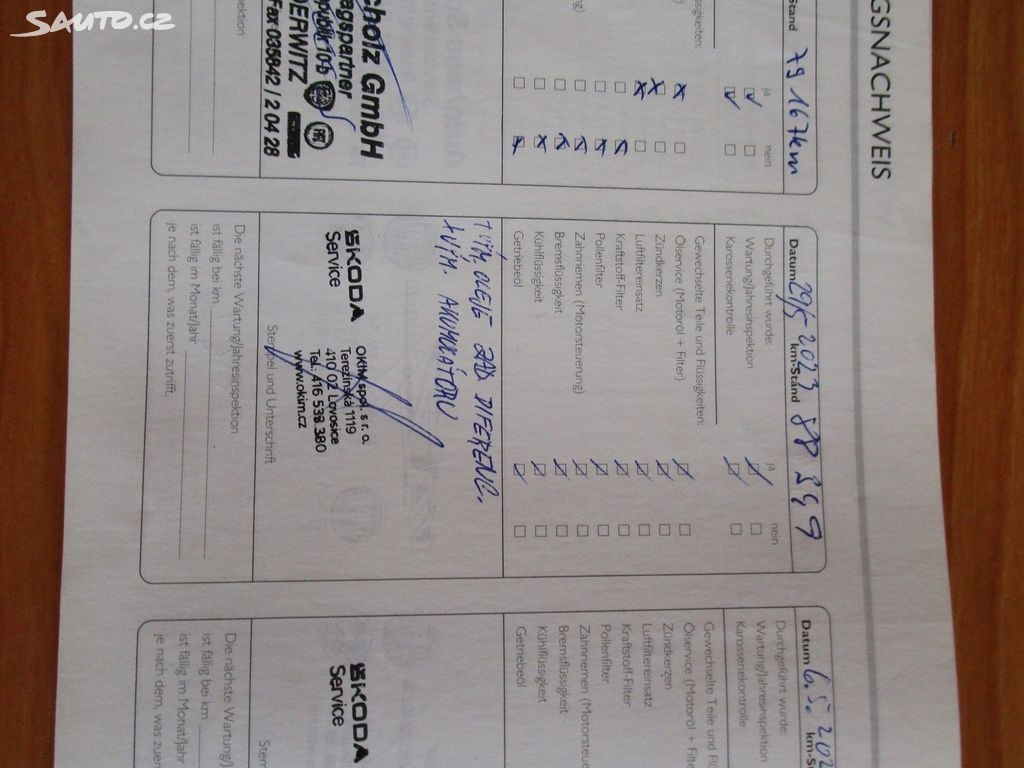 SAUTO.CZ
GSNACHWEIS
Stand 79 167km
ja nein
igkeiten:
cholz GmbH
agspartner
ERWITZ
Fax 035842 / 2 04 28
spektion
Datum 29/5 2023 km-Stand 88 949
Durchgeführt wurde: ja nein
Wartung/Jahresinspektion
Karosseriekontrolle
Gewechselte Teile und Flüssigkeiten:
Ölservice (Motoröl + Filter)
Zündkerzen
Luftfiltereinsatz
Kraftstoff-Filter
Pollenfilter
Zahnriemen (Motorsteuerung)
Bremsflüssigkeit
Kühlflüssigkeit
Getriebeöl
VÝM. OLEJE ZAD DIFERENC.
VÝM. AKUMULÁTORU
ŠKODA
Service
OKIM spol. s r. o.
Terezínská 1119
410 02 Lovosice
Tel.: 416 532 380
www.okim.cz
Stempel und Unterschrift
Die nächste Wartung/Jahresinspektion
ist fällig bei km
ist fällig im Monat/Jahr
je nach dem, was zuerst zutrifft.
Datum 6.5. 202 km-S
Durchgeführt wurde:
Wartung/Jahresinspektion
Karosseriekontrolle
Gewechselte Teile und Flü
Ölservice (Motoröl + Filte
Zündkerzen
Luftfiltereinsatz
Kraftstoff-Filter
Pollenfilter
Zahnriemen (Motorsteue
Bremsflüssigkeit
Kühlflüssigkeit
Getriebeöl
ŠKODA
Service
Stem
Die nächste Wartung/
ist fällig bei km
ist fällig im Monat/Jahr
je nach dem, was zuer